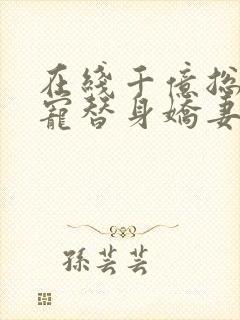 在綫千億总
寵替身嬌妻
孫芸芸